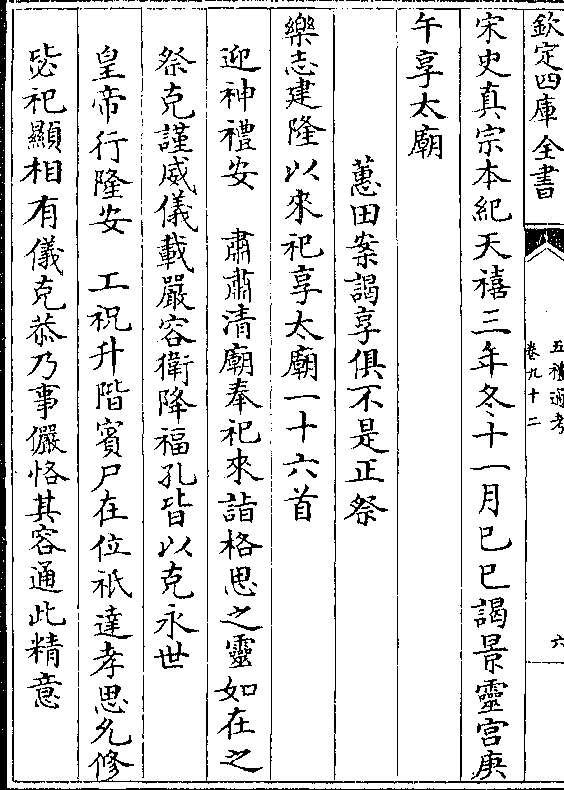 欽定四庫全書
五禮通考
卷九十二
六
宋史真宗本紀天禧三年冬十一月己巳謁景靈宮庚
午享太廟
蕙田案謁享俱不是正祭
樂志建隆以來祀享太廟一十六首
迎神禮安　肅肅清廟奉祀來詣格思之靈如在之
祭克謹威儀載嚴容衛降福孔皆以克永世
皇帝行隆安　工祝升階賓尸在位祇達孝思允修
毖祀顯相有儀克恭乃事儼恪其容通此精意